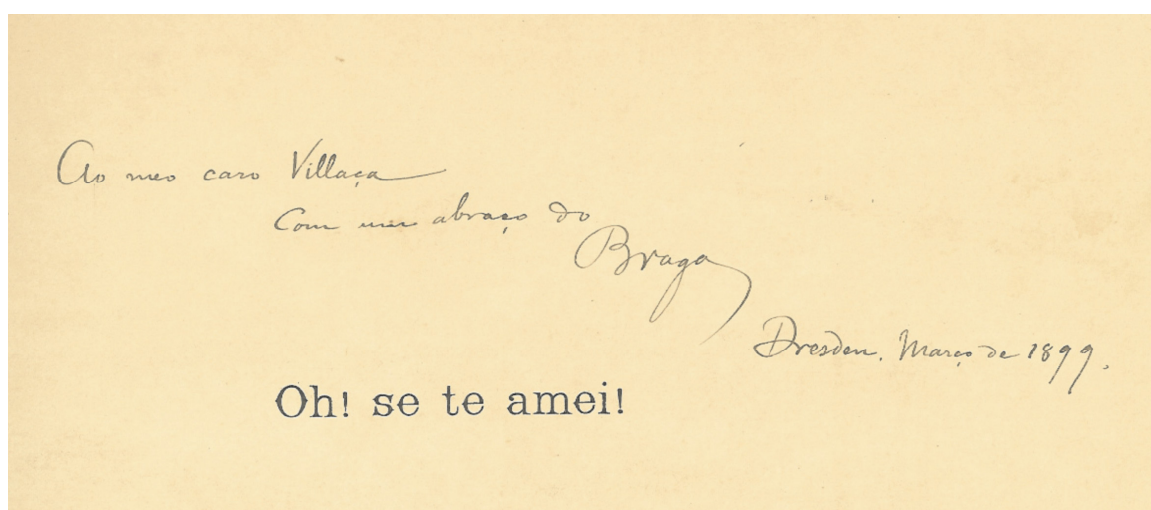 Ao meo caro Villaça
Com um abraço do
Braga
Dresden. Março de 1899.
Oh! se te amei!